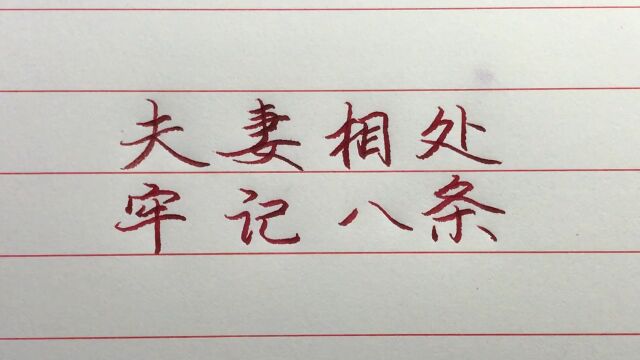 夫妻相处
牢记八条